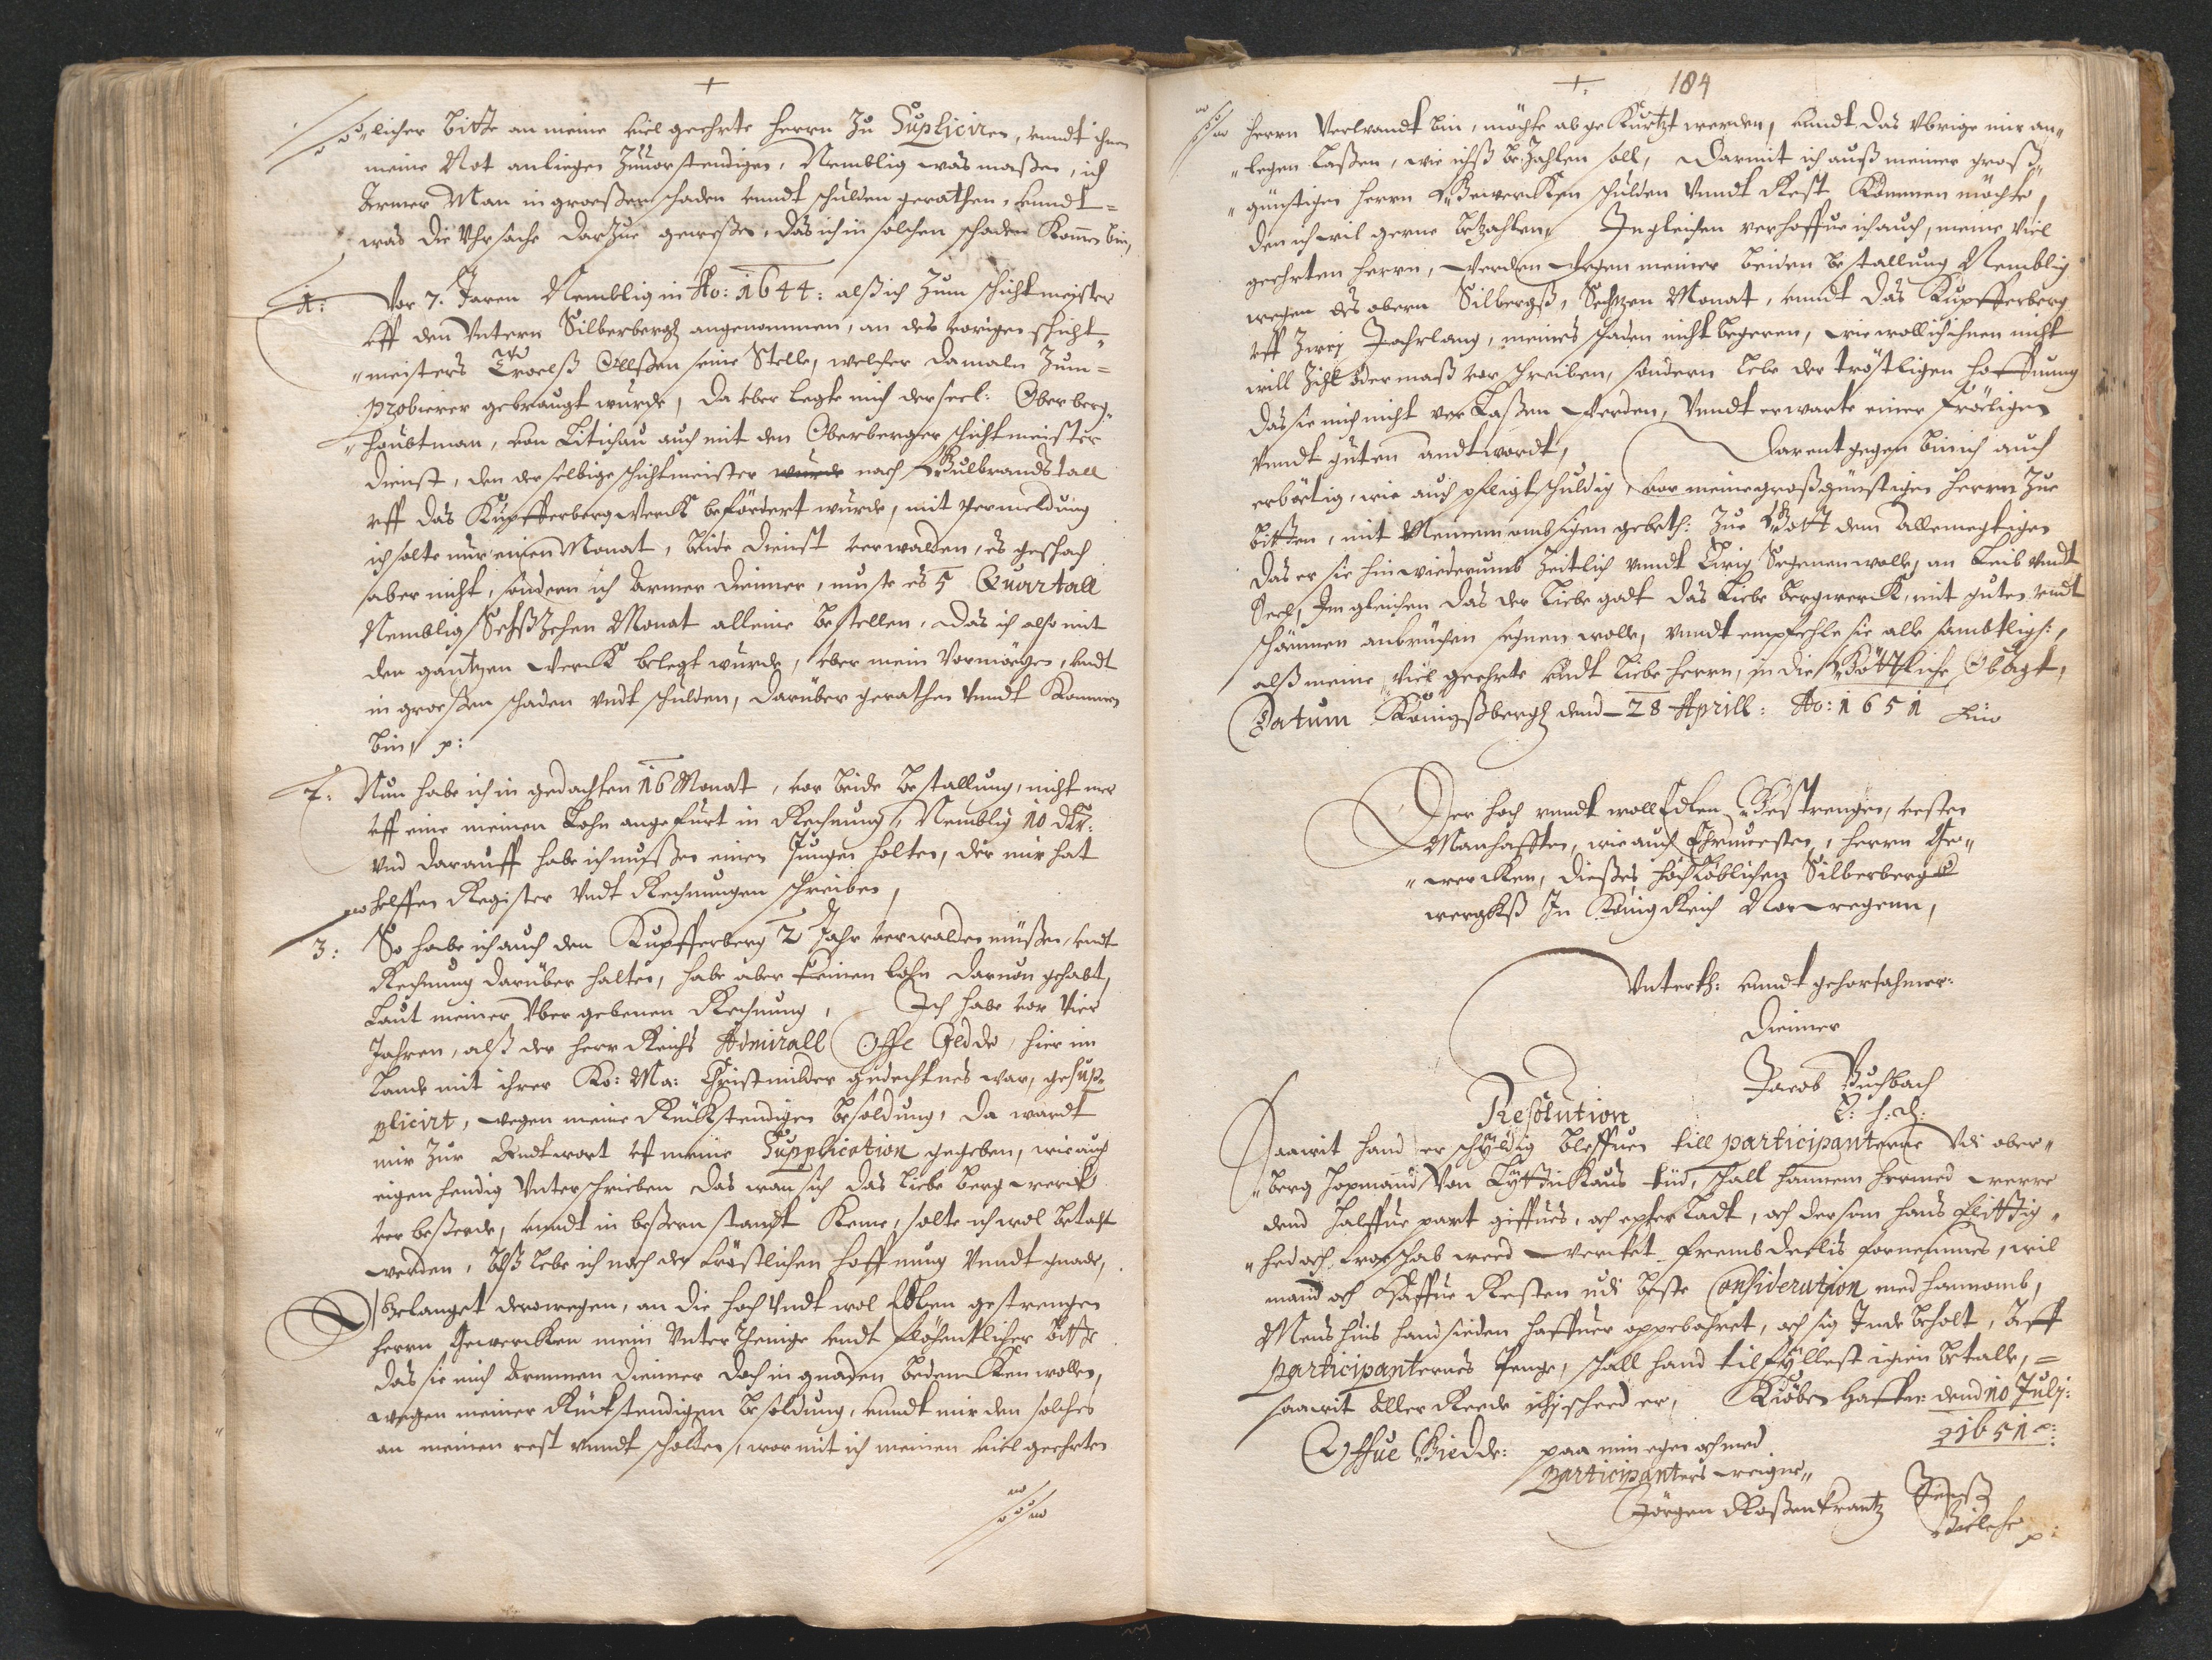 +
"licher bitte an meine viel geehrte herrn zu Supliciren, vnndt ihnen
meine Not anliegen zuuorstendigen, Nemblig was maßen, ich
Armer Man in groeßen schaden vnndt schulden gerathen, vnndt=
was die Vhrsache darzue geweßen, das ich in solchen schaden Komen bin,
1: Vor 7. Jaren Nemblig in Ao: 1644: alß ich zum schichtmeister
vff den Vntern Silberbergh angenommen, an des vorigen schicht"
"meisters Troelß Ollßen seine Stelle, welcher damaln zum=
probierer gebraugt wurde, da vber legte mich der seel: Oberberg"
"haubtman, von Litichau auch mit den Oberberger schichtmeister
dienst, den derselbige schichtmeister wurde nach Gulbrandstall
vff das Kupfferbergwerck befördert wurde, mit vermeldung
ich solte nur einen Monat, beide dienst verwalden, es geschach
aber nicht, sondern ich Armer diener, muste es 5 Quartall
Nemblig Sechßzehen Monat alleine bestellen, das ich also mit
den gantzen werck belegt wurde, vber mein Vermögen, vndt
in groeßen schaden vndt schulden, darüber gerathen vnndt Kommen
bin, p:
2: Nun habe ich in gedachten 16 Monat, vor beide bestallung, nicht mer
vff eine meinen Lohn angefürt in Rechnung, Nemblig 10 dlr:
vnd darauff habe ich mußen einen Jungen halten, der mir hat
helffen Register vndt Rechnungen schreiben,
3: So habe ich auch den Kupfferberg 2 Jahr verwalden müßen, vndt
Rechnung darüber halten, habe aber keinen lohn daruon gehabt,
Laut meiner vbergebenen Rechnung, Ich habe vor vier
Jahren, alß der herr Reichs Admirall Offe Gedde, hier im
Lande mit ihrer Ko: Ma: Christmilder gedechtnes war, gesup"
plicirt, wegen meine Rückstendigen besoldung, da wardt
mir zur Andtwort vf meine Supplication gegeben, wie auch
eigenhendig vnterschrieben das wan sich das liebe bergwerck
verbeßerde, vnndt in beßern standt Keme, solte ich wol betalt
werden, Alß lebe ich noch der tröstlichen hoffnung vnndt gnade,
Gelanget derowegen, an die hoch vndt wol Edlen gestrengen
herrn Gewercken mein Vnterthenige vndt flöhentlicher bitte
das sie mich Armmen dienner doch in gnaden bedencken wollen,
wegen meiner Rückstendigen besoldung, vnndt mir den solches
an meinen rest vnndt schulden, wormit ich meinen viel geehrten
+. 184
herrn Verwandt bin, möchte abgekurtzt werden, vnndt das vbrige mir an"
"legen laßen, wie ichß bezahlen soll, darmit ich auß meiner groß"
"günstigen herrn Gewercken schulden vnndt Rest Kommen möchte,
den ich wil gerne betzahlen, Ingleichen verhoffue ich auch, meine viel
geehrten herrn, werden wegen meiner beiden bestallung Nemblig
wegen des obern Silbergß, Sechtzen Monat, vnndt das Kupfferberg
vff zwej Jahrlang, meines schaden nicht begeren, wie woll ich ihnen nicht
will zihl oder maß vorschreiben, sondern lebe der tröstligen hoffnung
das sie mich nicht verlaßen werden, vnndt erwarte einer fröligen
vnndt guten andtwordt, darentgegen bin ich auch
erbörtig, wie auch pfligtschuldig, vor meine großgünstigen herrn zue
bitten, mit Meinem embsigen gebeth: zue Gott dem allemegtigen
das er sie hinwiederumb zeitlich vnndt Ewig Segenen wolle, an Leib vndt
Seel, Imgleichen das der liebe godt das liebe bergwerck, mit guten vndt
schönnen anbrüchen segnen wolle, vnndt empfehle sie alle sambtligh:,
alß meine viel geehrte vndt liebe herrn, in die Göttliche Obacht,
Datum Königßbergh dend 28 Aprill: Ao: 1651
Der hoch vnndt woll Edlen Gestrengen, vesten
Manhafften, wie auch Ehrnuesten, herrn Ge"
"wercken, dießes hochlöblichen Silberberg
wergkß In Königkreich Norwegenn,
Vnterth: vnndt gehorsahmer:
Dienner
Jacob Buchbach
Resolution
Saawit hand er schÿldig bleffuen till participanterne Vdi ober"
"berg hopmannd Von Lÿttinkaus tid, schall hannem hermed werre
dend halffue part giffues, och epterladt, och dersom hans flittig"
"hed och troeschab weed wercket fremdeelis fornemmes, wil
mand och haffue Resten udi beste Consideration med hannomb,
Mens huis hand siden haffuer oppebohret, och sig Inde beholt, Aff
participanternes penge, schall hand til fÿllest igien betalle,=
saawit aller Reede ichj scheed er, Kiøben haffn: dend 10 Julj:
1651
Offue Giedde: paa min egen och med
participanters wegne"
Jörgen Roßenkrantz Jenß
Bielche